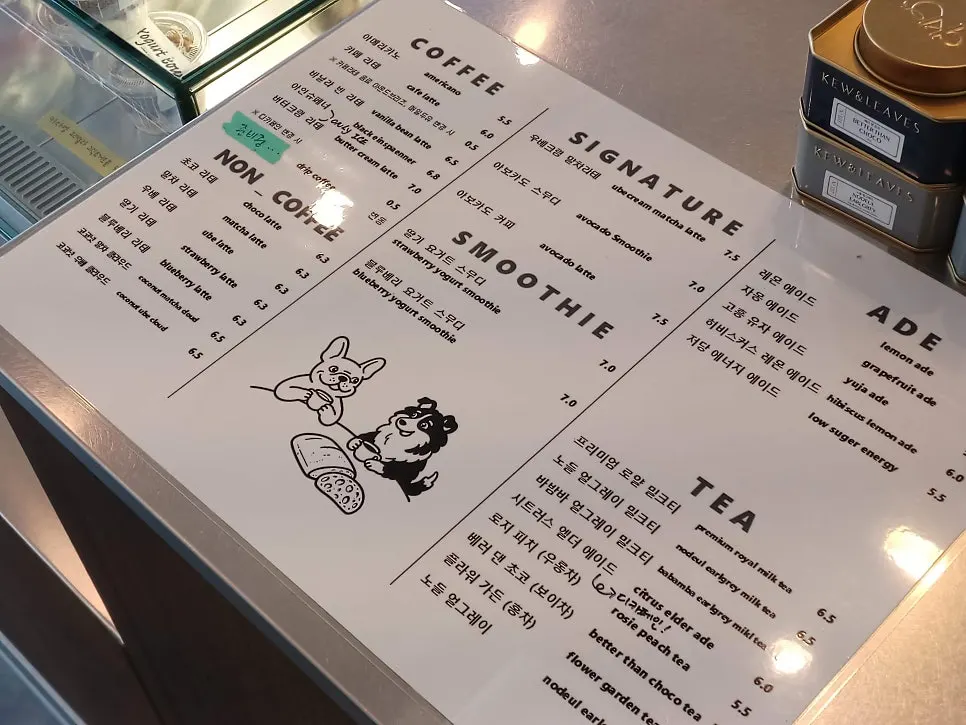 Yogurt Bowl
COFFEE
아메리카노
americano
5.5
카페 라떼
cafe latte
6.0
0.5
바닐라 빈 라떼
vanilla bean latte
6.5
아인슈페너
only ICE
black einspanner
6.8
버터크림 라떼
butter cream latte
7.0
※ 디카페인 변경 시
0.5
준비중...
drip coffee
변동
NON_COFFEE
초코 라떼
choco latte
6.3
말차 라떼
matcha latte
6.3
우베 라떼
ube latte
6.3
딸기 라떼
strawberry latte
6.3
블루베리 라떼
blueberry latte
6.3
코코넛 말차 클라우드
coconut matcha cloud
6.5
코코넛 우베 클라우드
coconut ube cloud
6.5
SIGNATURE
우베크림 말차라떼
ube cream matcha latte
7.5
아보카도 스무디
avocado Smoothie
7.0
아보카도 커피
avocado latte
7.5
SMOOTHIE
딸기 요거트 스무디
strawberry yogurt smoothie
7.0
블루베리 요거트 스무디
blueberry yogurt smoothie
7.0
ADE
레몬 에이드
lemon ade
자몽 에이드
grapefruit ade
고흥 유자 에이드
yuja ade
히비스커스 레몬 에이드
hibiscus lemon ade
6.0
저당 에너지 에이드
low suger energy
5.5
TEA
프리미엄 로얄 밀크티
premium royal milk tea
6.5
노들 얼그레이 밀크티
nodeul earlgrey milk tea
6.5
바밤바 얼그레이 밀크티
babamba earlgrey milkl tea
시트러스 엘더 에이드
citrus elder ade
6.0
↳디카페인!
로지 피치 (우롱차)
rosie peach tea
5.5
베러 댄 초코 (보이차)
better than choco tea
플라워 가든 (홍차)
flower garden tea
노들 얼그레이
nodeul earl
KEW&LEAVES
BETTER THAN
CHOCO
KEW&LEAVES